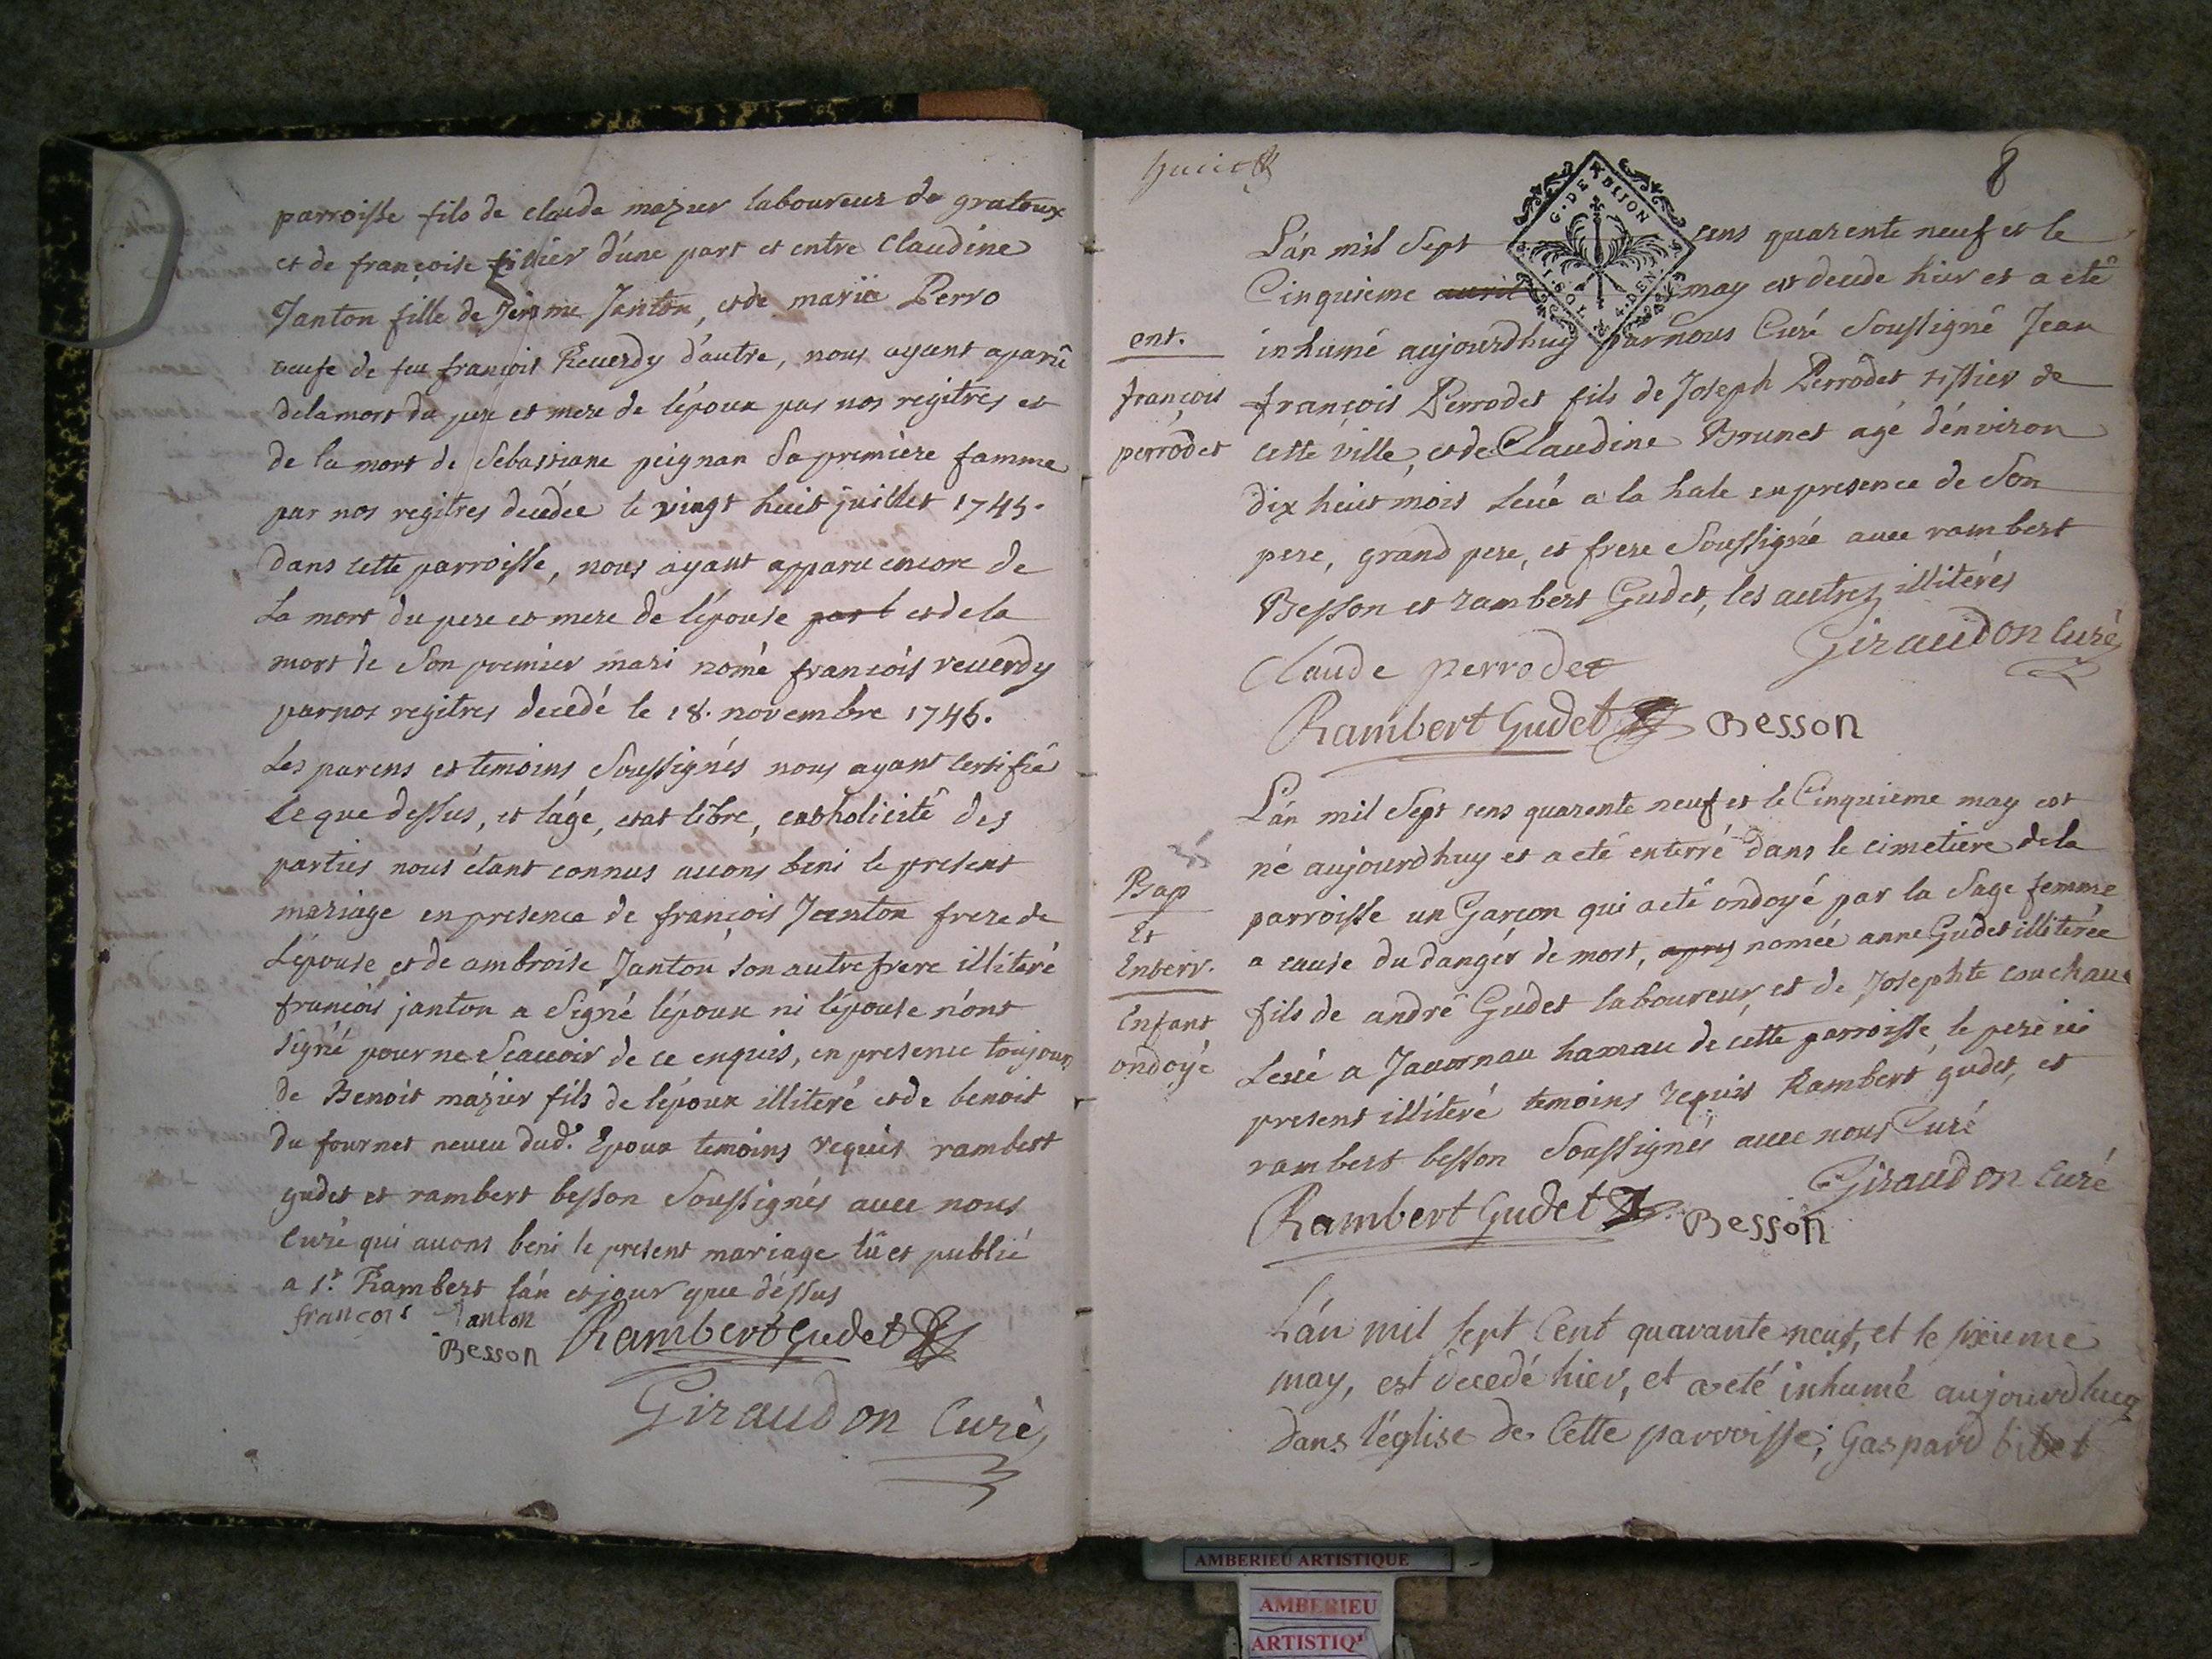 parroisse fils de claude mazuer laboureur de gratoux
et de françoise d'une part et entre Claudine
Janton fille de Jerome Janton, et de marië Perro
veufe de feu françois Reverdy d'autre, nous ayant aparû
de la mort du pere et mere de l'époux par nos regitres et
de la mort de Sebastiane peignan Sa premiere famme
par nos regitres decedée le vingt huit juillet 1745.
dans cette parroisse, nous ayant apparu encore de
La mort du pere et mere de l'épouse par l et de la
mort de Son premier mari nomé francois reuerdy
par nos regitres decedé le 18. novembre 1746.
Les parens et temoins Soussignés nous ayant certifié
Ce que dessus, et l'áge, etat libre, catholicité des
parties nous étant connus auons beni le present
mariage en presence de françois Janton frere de
L'épouse et de ambroise Janton son autre frere illiteré
francois janton a Signé l'époux ni l'épouse n'ont
signé pour ne Scauoir de ce enquis, en presence toujours
de Benoit mazuer fils de l'époux illiteré et de benoit
du fournet neueu dud. Epoux temoins requis rambert
gudet et rambert besson Soussignés auec nous
Curé qui auons beni le present mariage lû et publié
a St. Rambert l'án et jour que dessus
francois Janton
Besson Rambert Gudet
Giraudon Curé
8
G. DE DIJON
L'án mil Sept cens quarente neuf et le
Cinquieme auril may est decede hier et a eté
inhumé aujourdhuy par nous Curé Soussigné Jean
ent.
françois
perrodet
françois Perrodet fils de Joseph Perrodet tissier de
cette ville, et de Claudine Brunet agé d'énviron
dix huit mois Leué a la hale en presence de Son
pere, grand pere, et frere Soussigné auec rambert
Besson et rambert Gudet, les autres illiterés
Giraudon Curé
Claude perrodet
Rambert Gudet Besson
L'án mil Sept cens quarente neuf et le Cinquieme may est
né aujourdhuy et a eté enterré dans le cimetiere de la
Bap
Et
Enterr.
Enfant
ondoyé
parroisse un Garcon qui a eté ondoyé par la Sage femme
a cause du danger de mort, apres nomée anne Gudet illiterée
fils de andré Gudet laboureur, et de Josephte couchaux
Leué a Jauornau hamau de cette parroisse, le pere ici
present illiteré temoins requis Rambert gudet, et
rambert besson Soussignés auec nous Curé
Giraudon Curé
Rambert Gudet Besson
L'án mil sept Cent quarante neuf, et le sixieme
may, est decedé hier, et a eté inhumé aujourdhuy
dans l'église de Cette parroisse; Gaspard
AMBERIEU ARTISTIQUE
AMBERIEU
ARTISTIQ'